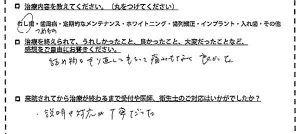 治療内容を教えてください。(丸をつけてください)
むし歯・歯周病・定期的なメンテナンス・ホワイトニング・歯列矯正・インプラント・入れ歯・その他
つめもの
治療を終えられて、うれしかったこと、良かったこと、大変だったことなど、
感想を自由にお書きください。
詰め物をやり直してもらって痛みもなく良かった
来院されてから治療が終わるまで受付や医師、衛生士のご対応はいかがでしたか?
・説明や対応が丁寧だった